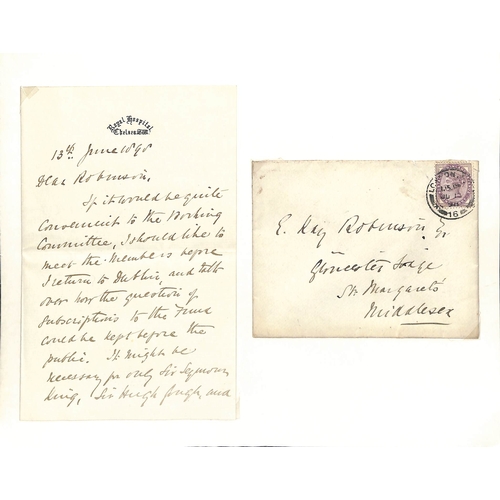 Royal Hospital
Chelsea S.W.
13th June 1898
Dear Robinson,
If it would be quite
Convenient to the Working
Committee, I should like to
meet the Members before
I return to Dublin, and talk
over how the question of
Subscriptions to the Fund
could be kept before the
public. It might be
necessary for only Sir Seymour
King, Sir Hugh Gough, and
E. Kay Robinson Esqr
Gloucester Lodge
St Margarets
Middlesex
LONDON
16